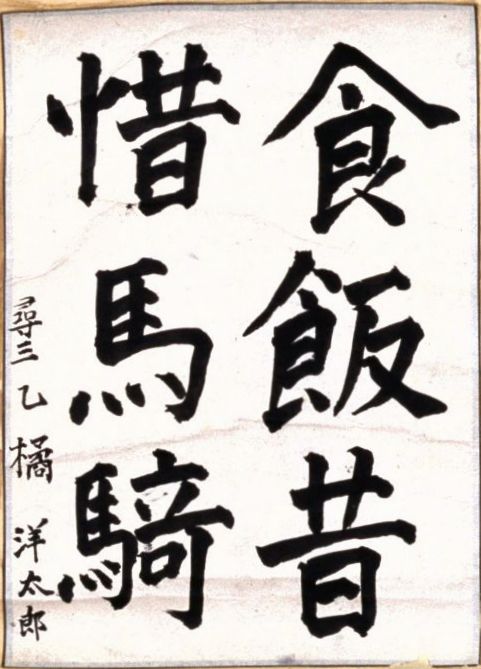 食飯昔
惜馬騎
尋三乙橘洋太郎